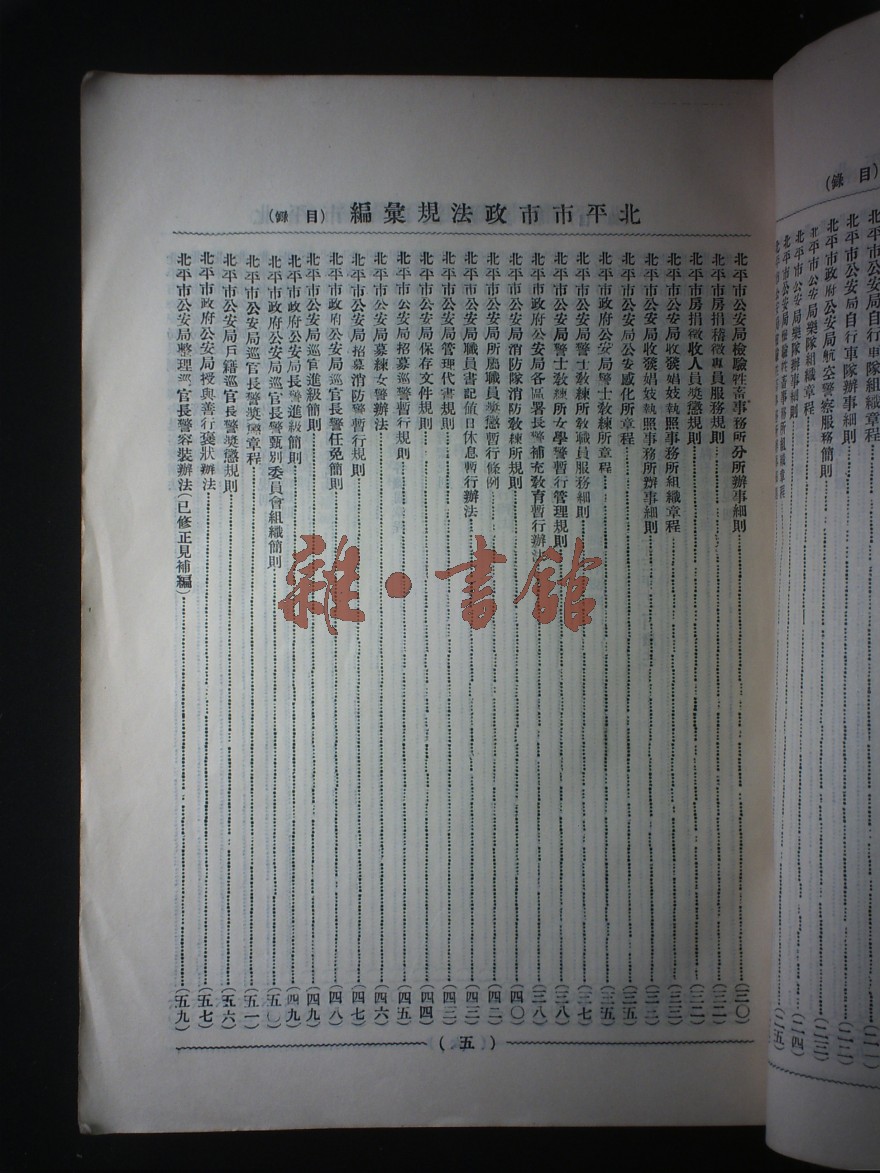 北平市市政法規彙編 (目錄)
北平市公安局檢驗牲畜事務所分所辦事細則 (三〇)
北平市房捐稽徵專員服務規則 (三二)
北平市房捐徵收人員獎懲規則 (三二)
北平市公安局收發娼妓執照事務所組織章程 (三三)
北平市公安局收發娼妓執照事務所辦事細則
北平市公安局公安感化所章程 (三五)
北平市政府公安局警士教練所章程 (三五)
北平市公安局警士教練所教職員服務細則 (三七)
北平市公安局警士教練所女學警暫行管理規則 (三八)
北平市政府公安局各區署長警補充教育暫行辦法 (三八)
北平市公安局消防隊消防教練所規則 (四〇)
北平市公安局所屬職員獎懲暫行條例 (四二)
北平市公安局職員書記值日休息暫行辦法 (四三)
北平市公安局管理代書規則 (四三)
北平市公安局保存文件規則 (四四)
北平市公安局招募巡警暫行規則 (四五)
北平市公安局募練女警辦法 (四六)
北平市公安局招募消防警暫行規則 (四七)
北平市政府公安局巡官長警任免簡則 (四八)
北平市公安局巡官進級簡則 (四九)
北平市政府公安局長警進級簡則 (四九)
北平市政府公安局巡官長警甄別委員會組織簡則 (五〇)
北平市公安局巡官長警獎懲章程 (五一)
北平市公安局戶籍巡官長警獎懲規則 (五六)
北平市政府公安局授與善行褒狀辦法 (五七)
北平市公安局整理巡官長警容裝辦法(已修正見補編) (五九)
(五)
雜·書館
(目錄)
北平市公安局自行車隊組織章程
北平市公安局自行車隊辦事細則 (二二)
北平市政府公安局航空警察服務簡則 (二三)
北平市公安局樂隊組織章程
北平市公安局樂隊辦事細則 (二四)
北平市公安局檢驗牲畜事務所組織章程 (二五)